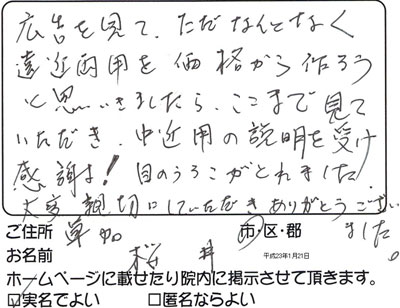 広告を見て、ただなんとなく
遠近両用を価格から作ろう
と思いきましたら、ここまで見て
いただき、中近用の説明を受け
感謝す!目のうろこがとれました
大変親切にしていただきありがとうござい
ました。
ご住所 草加 市・区・郡
お名前 桜井 平成23年1月21日
ホームページに載せたり院内に掲示させて頂きます。
☑実名でよい □匿名ならよい